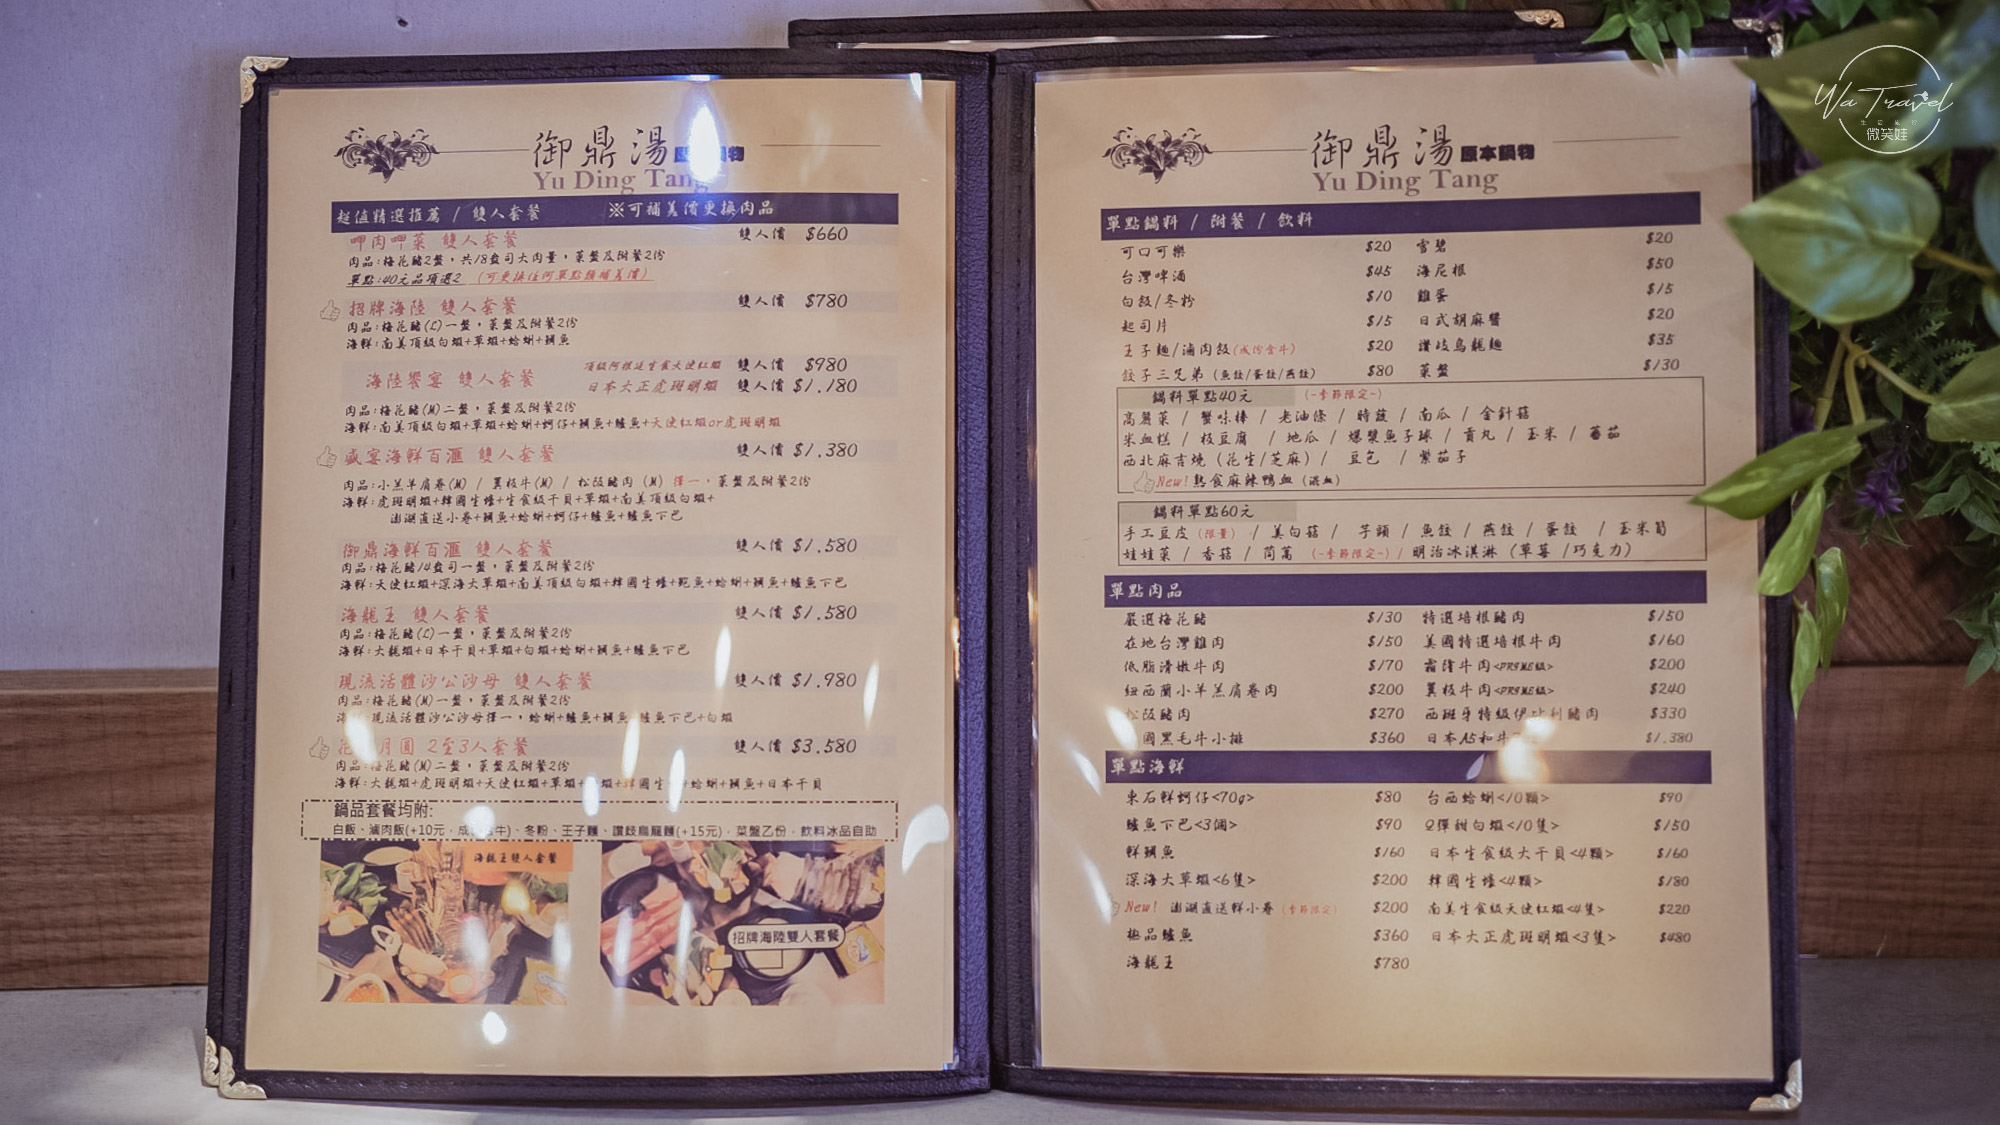 御鼎湯 原本鍋物
Yu Ding Tang
超值精選推薦 / 雙人套餐 ※可補差價更換肉品
呷肉呷菜 雙人套餐 雙人價 $660
肉品:梅花豬2盤,共18盎司大肉量,菜盤及附餐2份
單點:40元品項選2 (可更換任何單點類補差價)
招牌海陸 雙人套餐 雙人價 $780
肉品:梅花豬(L)一盤,菜盤及附餐2份
海鮮:南美頂級白蝦+草蝦+蛤蜊+鯛魚
頂級阿根廷生食天使紅蝦 雙人價 $980
海陸饗宴 雙人套餐 日本大正虎斑明蝦 雙人價 $1,180
肉品:梅花豬(M)二盤,菜盤及附餐2份
海鮮:南美頂級白蝦+草蝦+蛤蜊+蚵仔+鯛魚+鱸魚+天使紅蝦or虎斑明蝦
盛宴海鮮百滙 雙人套餐 雙人價 $1,380
肉品:小羔羊肩卷(M) / 翼板牛(M) / 松阪豬肉 (M) 擇一,菜盤及附餐2份
海鮮:虎斑明蝦+韓國生蠔+生食級干貝+草蝦+南美頂級白蝦+
澎湖直送小卷+鯛魚+蛤蜊+蚵仔+鱸魚+鱸魚下巴
御鼎海鮮百滙 雙人套餐 雙人價 $1,580
肉品:梅花豬14盎司一盤,菜盤及附餐2份
海鮮:天使紅蝦+深海大草蝦+南美頂級白蝦+韓國生蠔+鮑魚+蛤蜊+鯛魚+鱸魚下巴
海龍王 雙人套餐 雙人價 $1,580
肉品:梅花豬(L)一盤,菜盤及附餐2份
海鮮:大龍蝦+日本干貝+草蝦+白蝦+蛤蜊+鯛魚+鱸魚下巴
現流活體沙公沙母 雙人套餐 雙人價 $1,980
肉品:梅花豬(M)一盤,菜盤及附餐2份
現流活體沙公沙母擇一,蛤蜊+鱸魚+鯛魚 鱸魚下巴+白蝦
花 月圓 2至3人套餐 雙人價 $3,580
肉品:梅花豬(M)二盤,菜盤及附餐2份
海鮮:大龍蝦+虎斑明蝦+天使紅蝦+草蝦 蝦+韓國生 +蛤蜊+鯛魚+日本干貝
鍋品套餐均附:
白飯、滷肉飯(+10元, 牛)、冬粉、王子麵、讚歧烏龍麵(+15元),菜盤乙份,飲料冰品自助
海龍王雙人套餐
招牌海陸雙人套餐
御鼎湯 原本鍋物
Yu Ding Tang
單點鍋料 / 附餐 / 飲料
可口可樂 $20 雪碧 $20
台灣啤酒 $45 海尼根 $50
白飯/冬粉 $10 雞蛋 $15
起司片 $15 日式胡麻醬 $20
王子麵/滷肉飯(成份含牛) $20 讚歧烏龍麵 $35
餃子三兄弟 (魚餃/蛋餃/燕餃) $80 菜盤 $130
鍋料單點40元 (-季節限定-)
高麗菜 / 蟹味棒 / 老油條 / 時蔬 / 南瓜 / 金針菇
米血糕 / 枝豆腐 / 地瓜 / 爆漿魚子球 / 貢丸 / 玉米 / 蕃茄
西北麻吉燒 (花生/芝麻) / 豆包 / 紫茄子
New!熟食麻辣鴨血 (混血)
鍋料單點60元
手工豆皮 (限量) / 美白菇 / 芋頭 / 魚餃 / 燕餃 / 蛋餃 / 玉米筍
娃娃菜 / 香菇 / 茼蒿 (-季節限定-) / 明治冰淇淋 (草莓 /巧克力)
單點肉品
嚴選梅花豬 $130 特選培根豬肉 $150
在地台灣雞肉 $150 美國特選培根牛肉 $160
低脂滑嫩牛肉 $170 霜降牛肉<PRIME級> $200
紐西蘭小羊羔肩卷肉 $200 翼板牛肉<PRIME級> $240
松阪豬肉 $270 西班牙特級伊比利豬肉 $330
國黑毛牛小排 $360 日本A5和牛 $1,380
單點海鮮
東石鮮蚵仔<70g> $80 台西蛤蜊<10顆> $90
鱸魚下巴<3個> $90 Q彈甜白蝦<10隻> $150
鮮鯛魚 $160 日本生食級大干貝<4顆> $160
深海大草蝦<6隻> $200 韓國生蠔<4顆> $180
New! 澎湖直送鮮小卷 (季節限定) $200 南美生食級天使紅蝦<4隻> $220
極品鱸魚 $360 日本大正虎斑明蝦<3隻> $480
海龍王 $780
Wa Travel
微笑娃